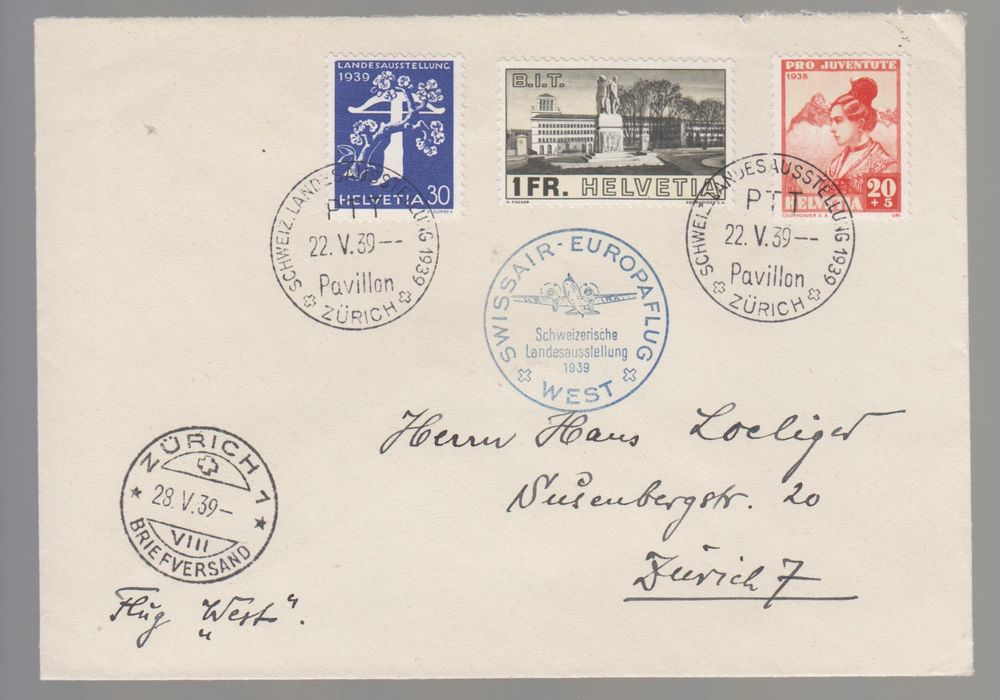 LANDESAUSSTELLUNG
1939
HELVETIA 30
B.I.T.
1 FR. HELVETIA
H. FISCHER COURVOISIER S.A.
PRO JUVENTUTE
1938
20
+5
HELVETIA
COURVOISIER S.A. URI
SCHWEIZ. LANDESAUSSTELLUNG 1939
PTT
22.V.39--
Pavillon
ZÜRICH
SCHWEIZ. LANDESAUSSTELLUNG 1939
PTT
22.V.39--
Pavillon
ZÜRICH
SWISSAIR-EUROPAFLUG
Schweizerische
Landesausstellung
1939
WEST
Herrn Hans Loeliger
Susenbergstr. 20
Zürich 7
ZÜRICH 1
28.V.39-
VIII
BRIEFVERSAND
Flug "West".